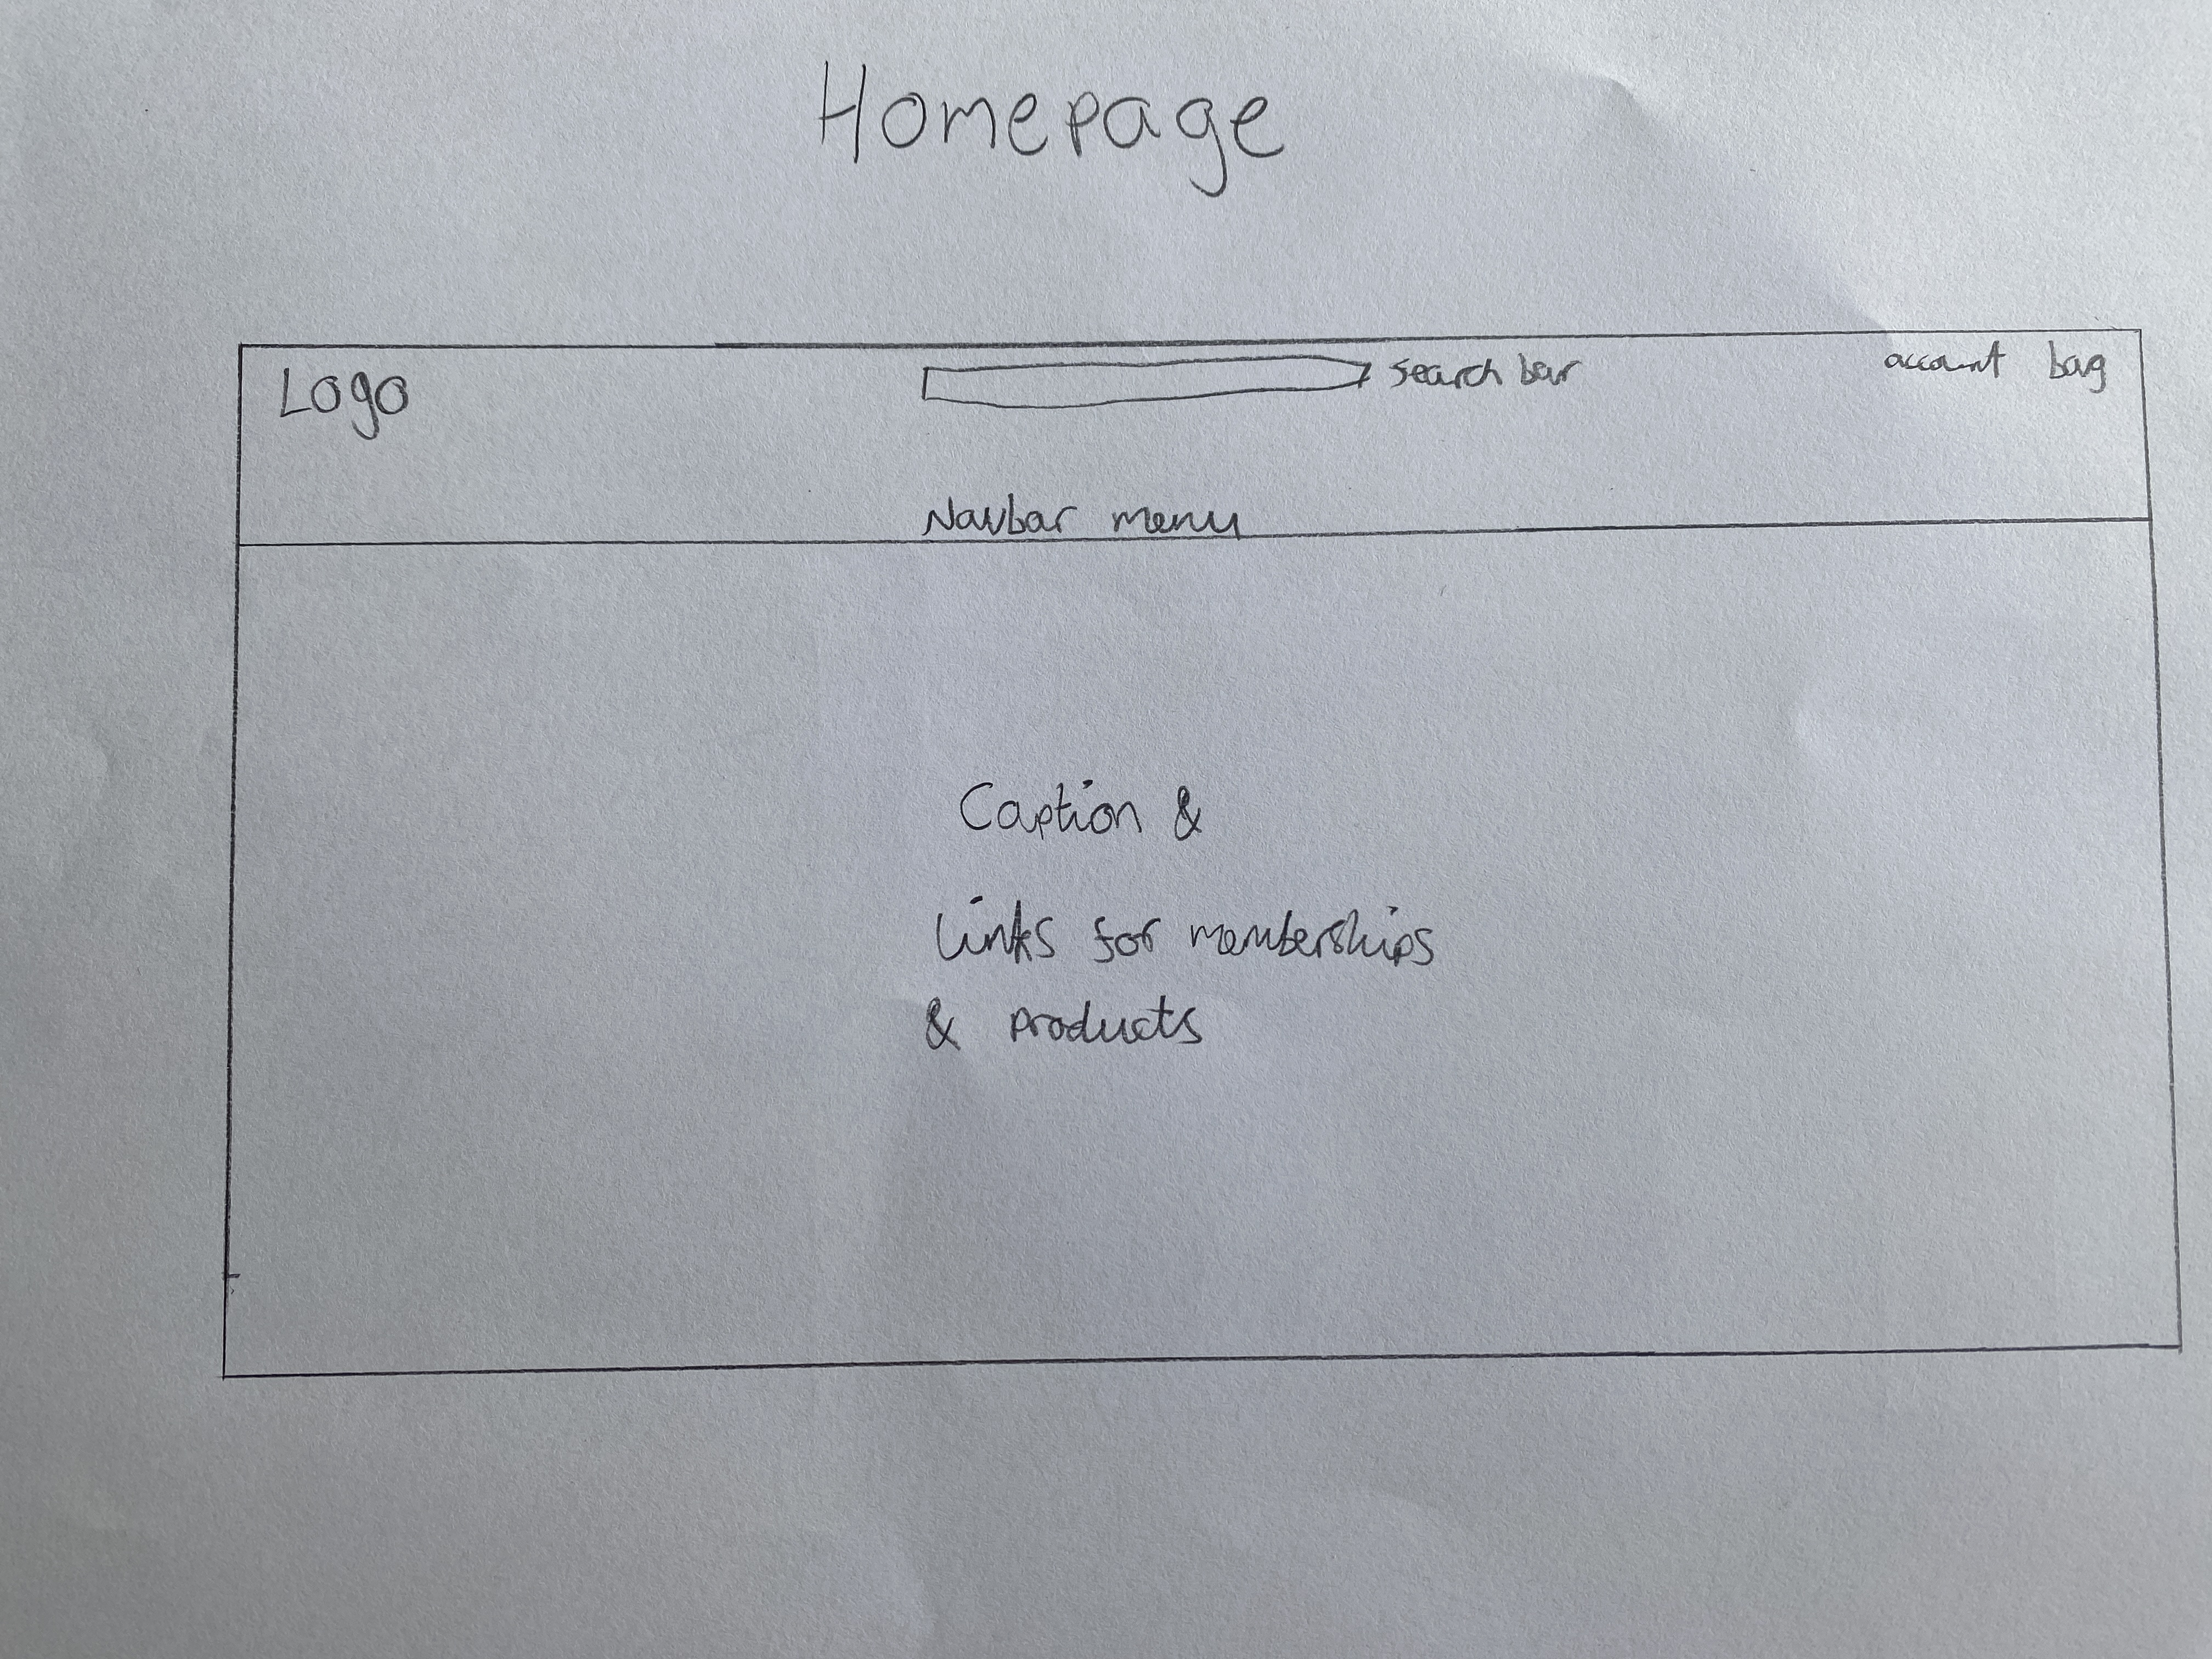 Homepage
Logo
search bar
account bag
Navbar menu
Caption &
Links for memberships
& products